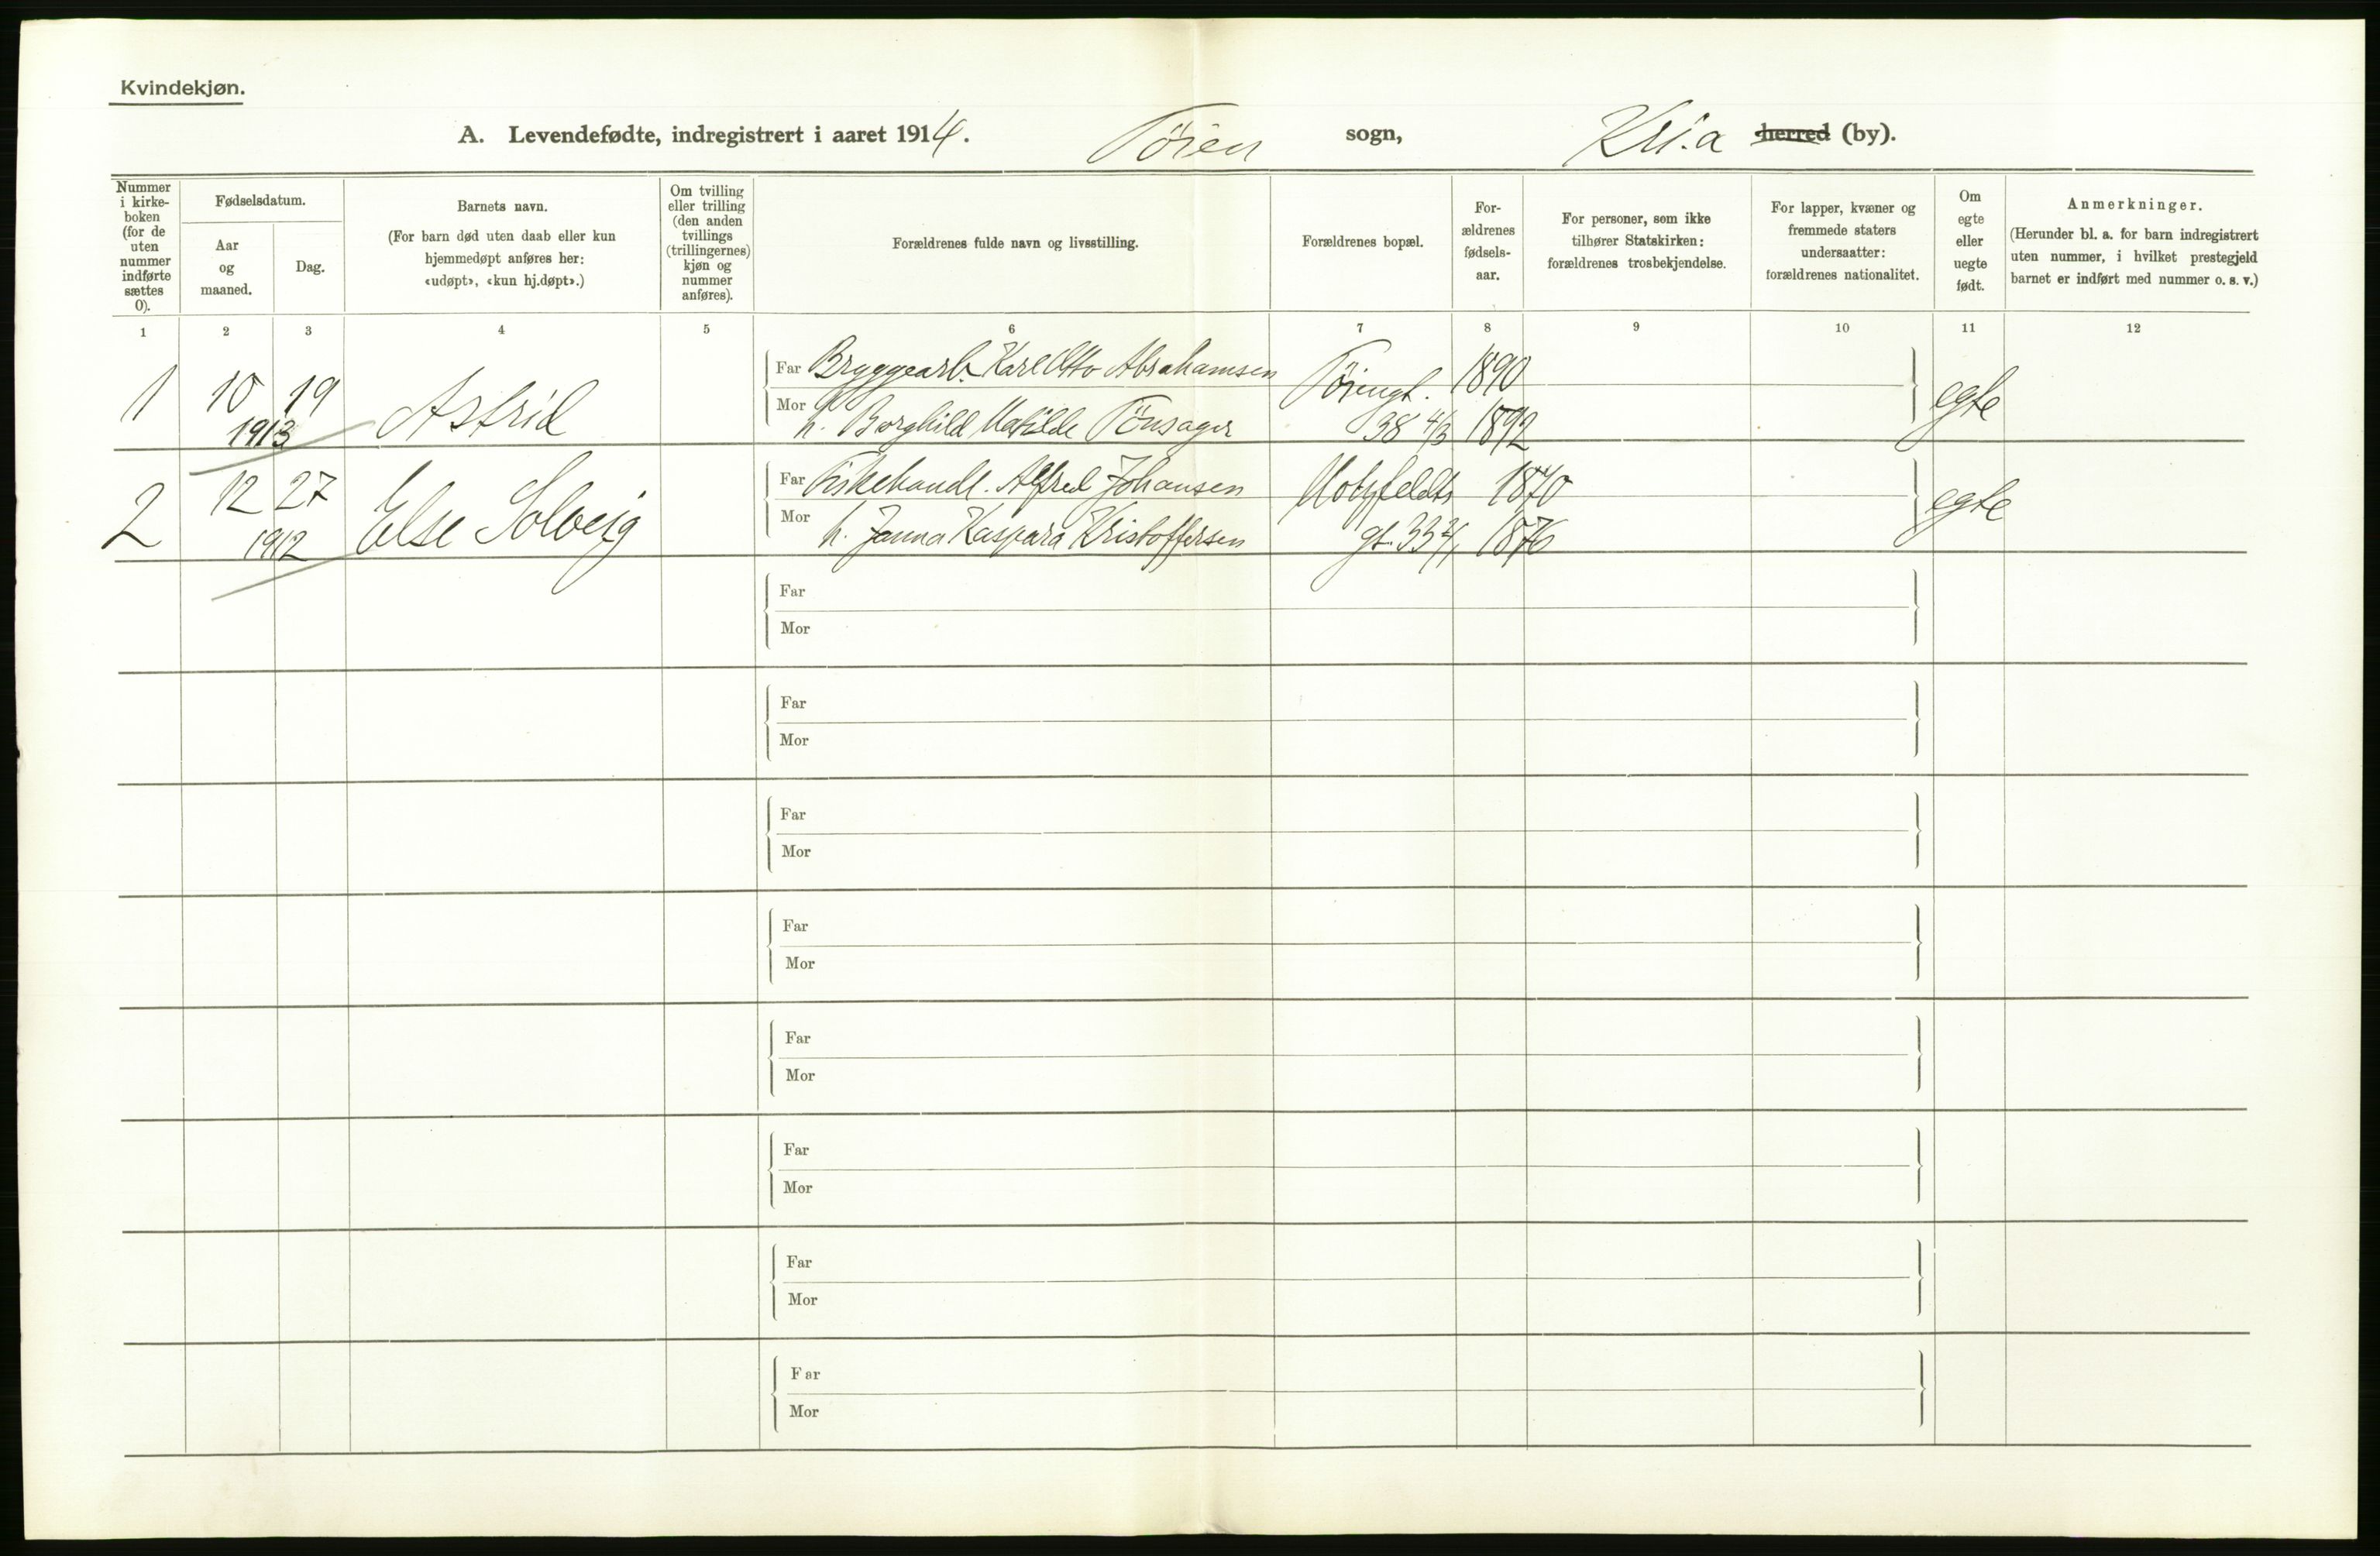 Kvindekjøn.
A. Levendefødte, indregistrert i aaret 1914. Töien sogn, Kria herred (by).
Nummer i kirke-boken (for de uten nummer indførte sættes 0).
Fødselsdatum.
Aar og maaned.
Dag.
Barnets navn.
(For barn død uten daab eller kun
hjemmedøpt anføres her:
«udøpt», «kun hj.døpt».)
Om tvilling
eller trilling
(den anden
tvillings
(trillingernes)
kjøn og
nummer
anføres).
Forældrenes fulde navn og livsstilling.
Forældrenes bopæl.
For-
ældrenes
fødsels-
aar.
For personer, som ikke
tilhører Statskirken:
forældrenes trosbekjendelse.
For lapper, kvæner og
fremmede staters
undersaatter:
forældrenes nationalitet.
Om
egte
eller
uegte
født.
Anmerkninger.
(Herunder bl. a. for barn indregistrert
uten nummer, i hvilket prestegjeld
barnet er indført med nummer o. s. v.)
1 2 3 4 5 6 7 8 9 10 11 12
1 10 19 Astrid Far Bryggearb. Karl Otto Abrahamsen Töiengt. 1890 egte
1913 Mor h. Borghild Matilde Tönsager 38 4/3 1892
2 12 27 Else Solveig Far Fiskehandl. Alfred Johansen Motzfeldts 1870 egte
1912 Mor h. Janna Kaspara Kristoffersen gt. 33 1876
Far
Mor
Far
Mor
Far
Mor
Far
Mor
Far
Mor
Far
Mor
Far
Mor
Far
Mor